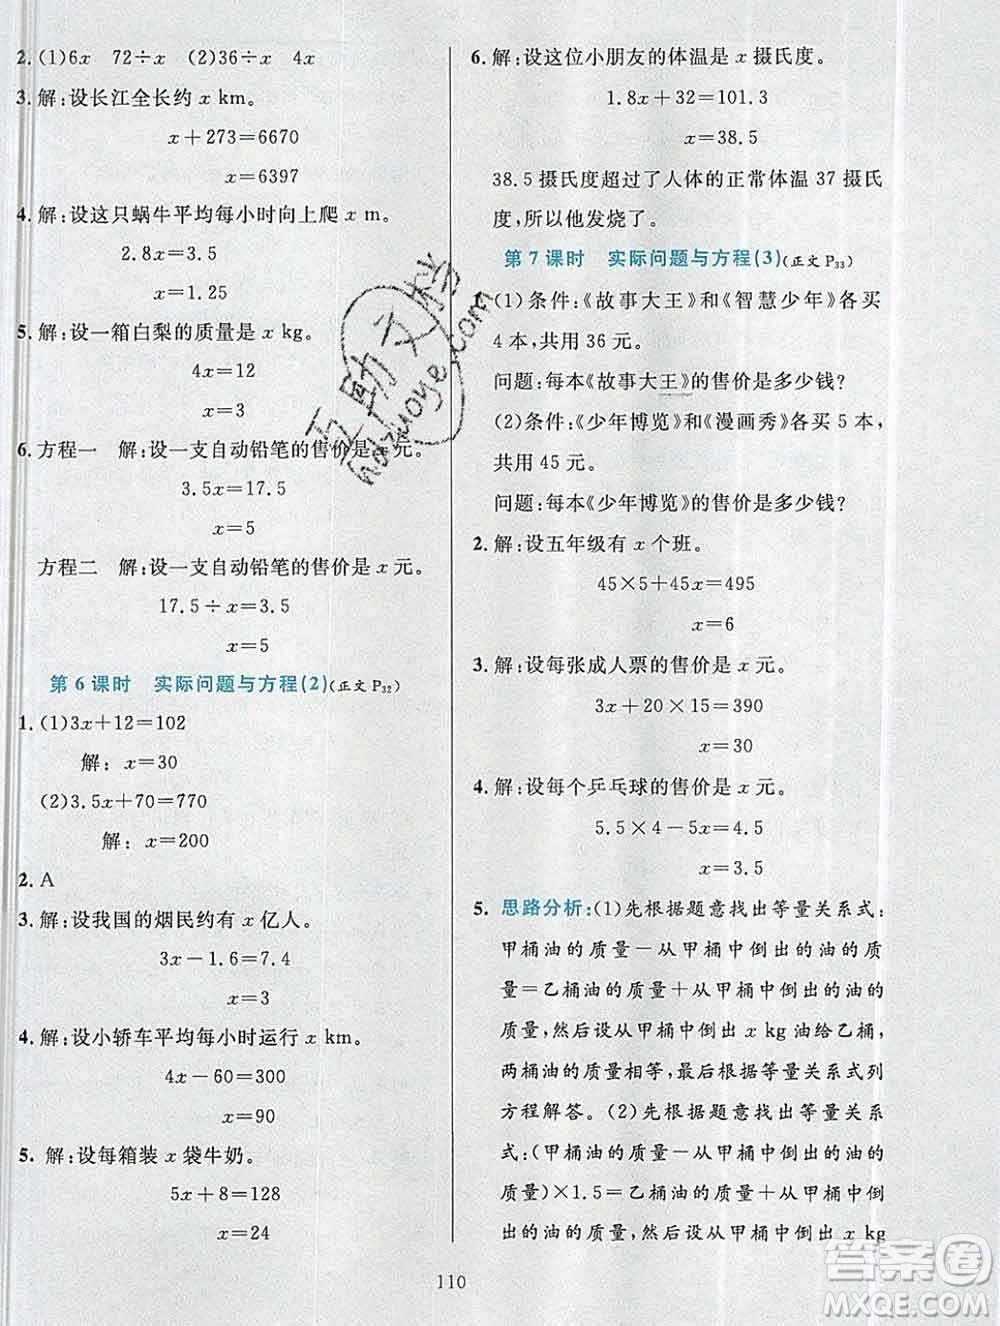 2. (1)6x　72÷x　(2)36÷x　4x
3. 解:设长江全长约 x km。
x+273=6670
x=6397
4. 解:设这只蜗牛平均每小时向上爬 x m。
2.8x=3.5
x=1.25
5. 解:设一箱白梨的质量是 x kg。
4x=12
x=3
6. 方程一　解:设一支自动铅笔的售价是 x 元。
3.5x=17.5
x=5
方程二　解:设一支自动铅笔的售价是 x 元。
17.5÷x=3.5
x=5
第 6 课时　实际问题与方程(2)(正文 P32)
1. (1)3x+12=102
解: x=30
(2)3.5x+70=770
解: x=200
2. A
3. 解:设我国的烟民约有 x 亿人。
3x-1.6=7.4
x=3
4. 解:设小轿车平均每小时运行 x km。
4x-60=300
x=90
5. 解:设每箱装 x 袋牛奶。
5x+8=128
x=24
6. 解:设这位小朋友的体温是 x 摄氏度。
1.8x+32=101.3
x=38.5
38.5 摄氏度超过了人体的正常体温 37 摄氏
度,所以他发烧了。
第 7 课时　实际问题与方程(3)(正文 P33)
1. (1)条件:《故事大王》和《智慧少年》各买
4 本,共用 36 元。
问题:每本《故事大王》的售价是多少钱?
(2)条件:《少年博览》和《漫画秀》各买 5 本,
共用 45 元。
问题:每本《少年博览》的售价是多少钱?
2. 解:设五年级有 x 个班。
45×5+45x=495
x=6
3. 解:设每张成人票的售价是 x 元。
3x+20×15=390
x=30
4. 解:设每个乒乓球的售价是 x 元。
5.5×4-5x=4.5
x=3.5
5. 思路分析:(1)先根据题意找出等量关系式:
甲桶油的质量-从甲桶中倒出的油的质
量=乙桶油的质量+从甲桶中倒出的油的
质量,然后设从甲桶中倒出 x kg 油给乙桶,
两桶油的质量相等,最后根据等量关系式列
方程解答。(2)先根据题意找出等量关系
式:(甲桶油的质量-从甲桶中倒出的油的
质量)×1.5=乙桶油的质量+从甲桶中倒
出的油的质量,然后设从甲桶中倒出 x kg
110
互助文学
huzuoye.com
答案圈
MXQE.COM